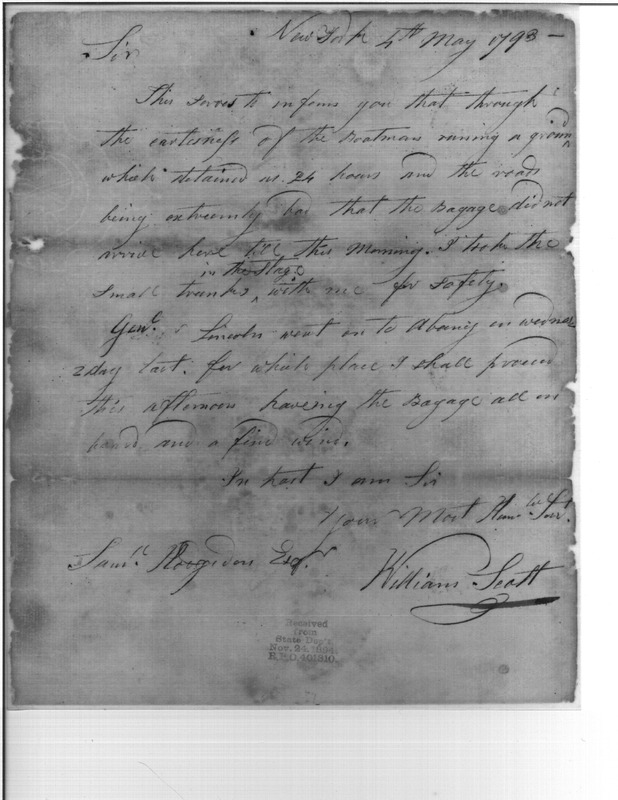 New York 4th May 1793 -
Sir
This serves to inform you that through
the carlesness of the Boatman running a ground
which detained us 24 hours and the roads
being extreemly bad that the Bagage did not
arrive here till this Morning. I took the
in the Stage
small trunks ^ with me for safety.
Genl. Lincoln went on to Albany on wednes-
day last. for which place I shall proceed
this afternoon haveing the Bagage all on
board and a fine wind.
In hast I am Sir
Your Most Humble Servt.
Saml. Hodgdon Esqr.
William Scott
Received
from
State Dep't.
Nov. 24, 1894.
R.P.O. 401810.